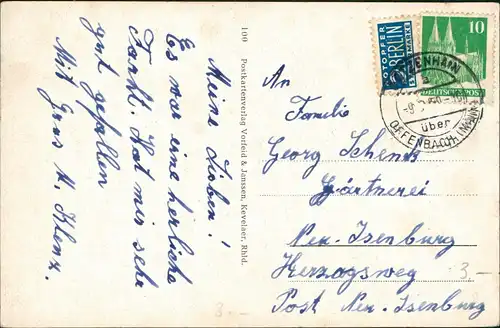 Meine Lieben!
Es war eine herrliche
Fahrt. Hat mir sehr
gut gefallen
Mit Grus H. Klenz.
100 Postkartenverlag Vorfeld & Janssen, Kevelaer, Rhld.
NOTOPFER
2 BERLIN
STEUERMARKE
10
DEUTSCHE POST
über
OFFENBACH (MAIN)
An
Familie
Georg Schenk
Gärtnerei
Neu-Isenburg
Herzogsweg
Post Neu-Isenburg
3-
3-